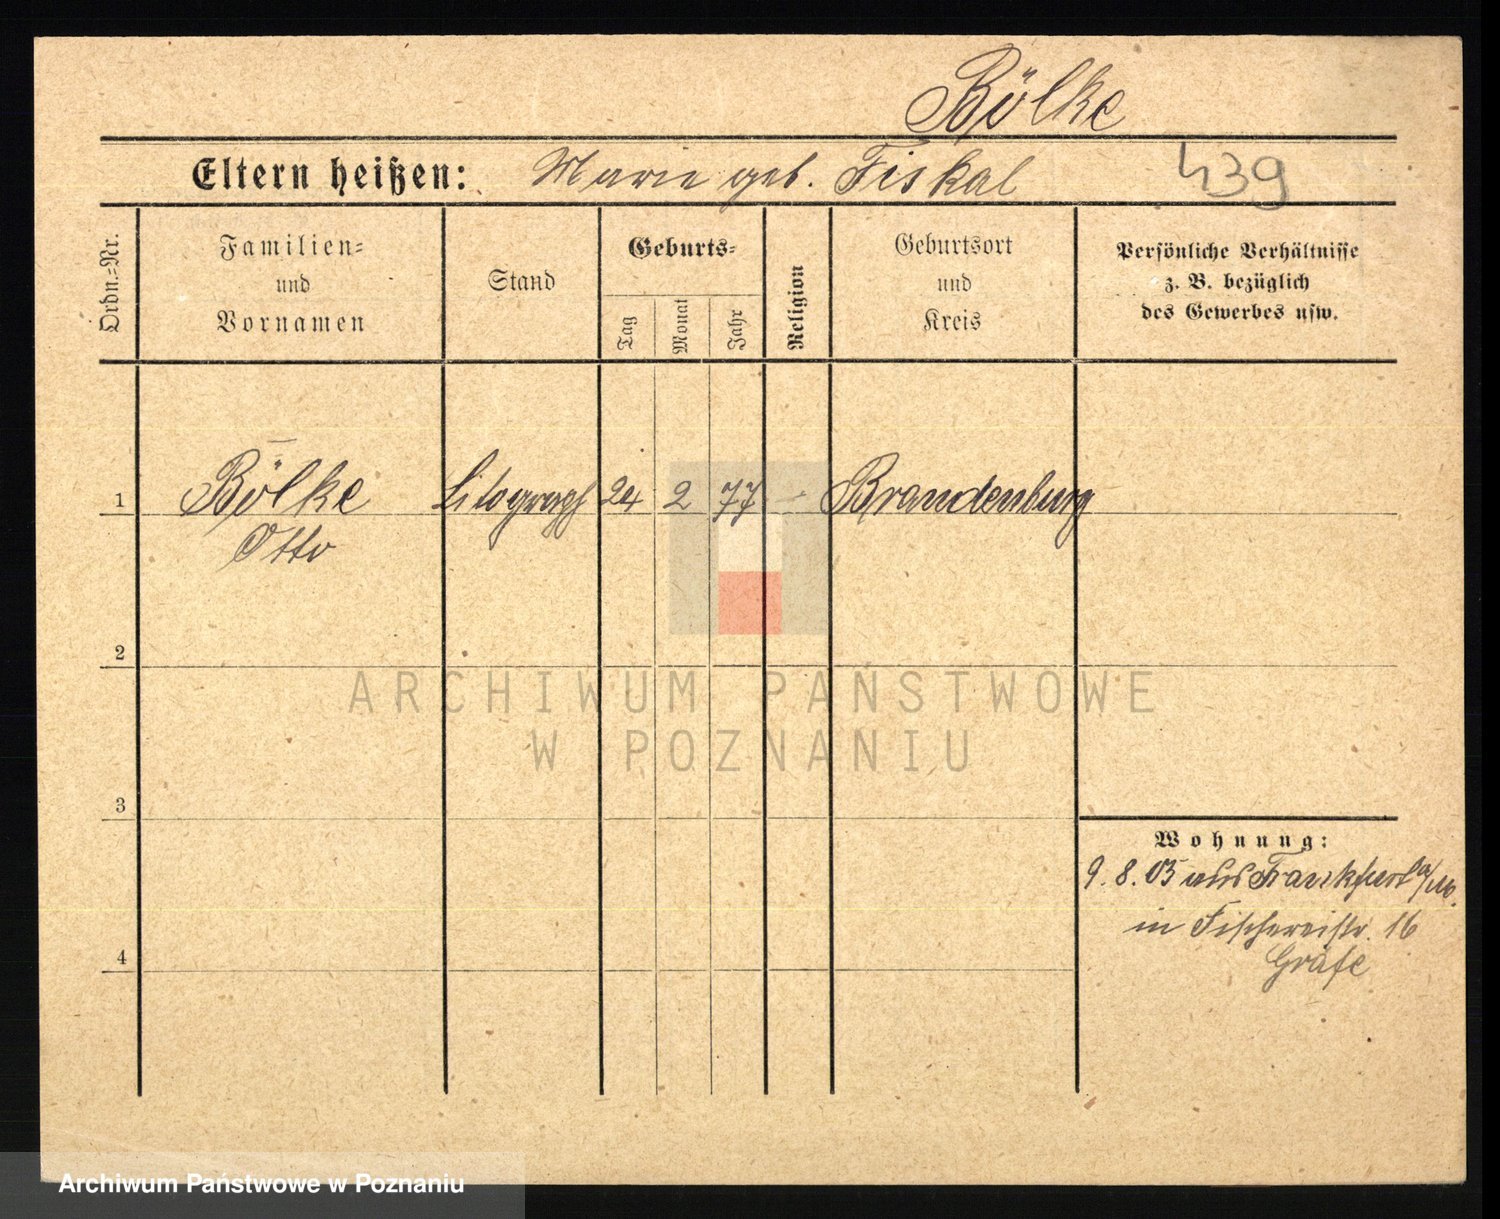 Bölke
Eltern heißen: Marie geb. Fiskal 439
Ordn.=Nr.
Familien=
und
Vornamen
Stand
Geburts=
Tag
Monat
Jahr
Religion
Geburtsort
und
Kreis
Persönliche Verhältnisse
z. B. bezüglich
des Gewerbes usw.
1 Bölke Litograph 24 2 77 – Brandenburg
Otto
2
3
4
Wohnung:
9. 8. 05 aus Frankfurt a/M.
in Fischereistr. 16
Gräfe
ARCHIWUM PAŃSTWOWE
W POZNANIU
Archiwum Państwowe w Poznaniu